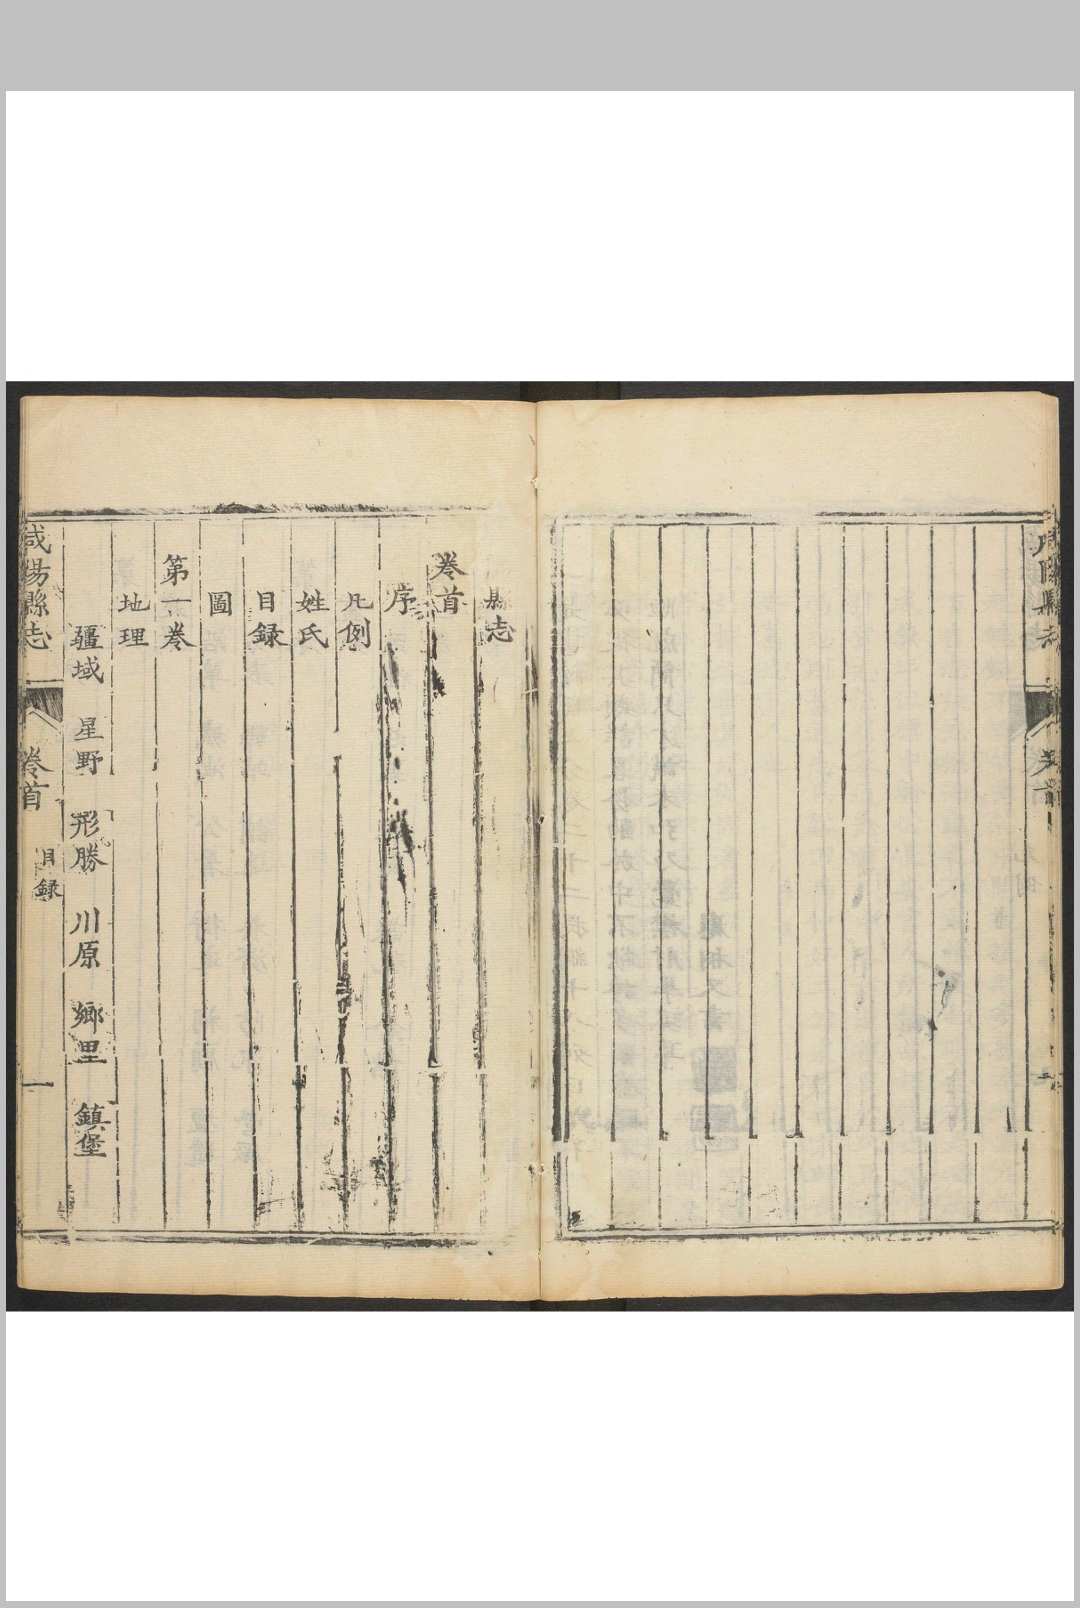 咸陽縣志
卷首
縣志
卷首
序
凡例
姓氏
目録
圖
第一卷
地理
疆域 星野 形勝 川原 鄉里 鎮堡
咸陽縣志
卷首
目録
一